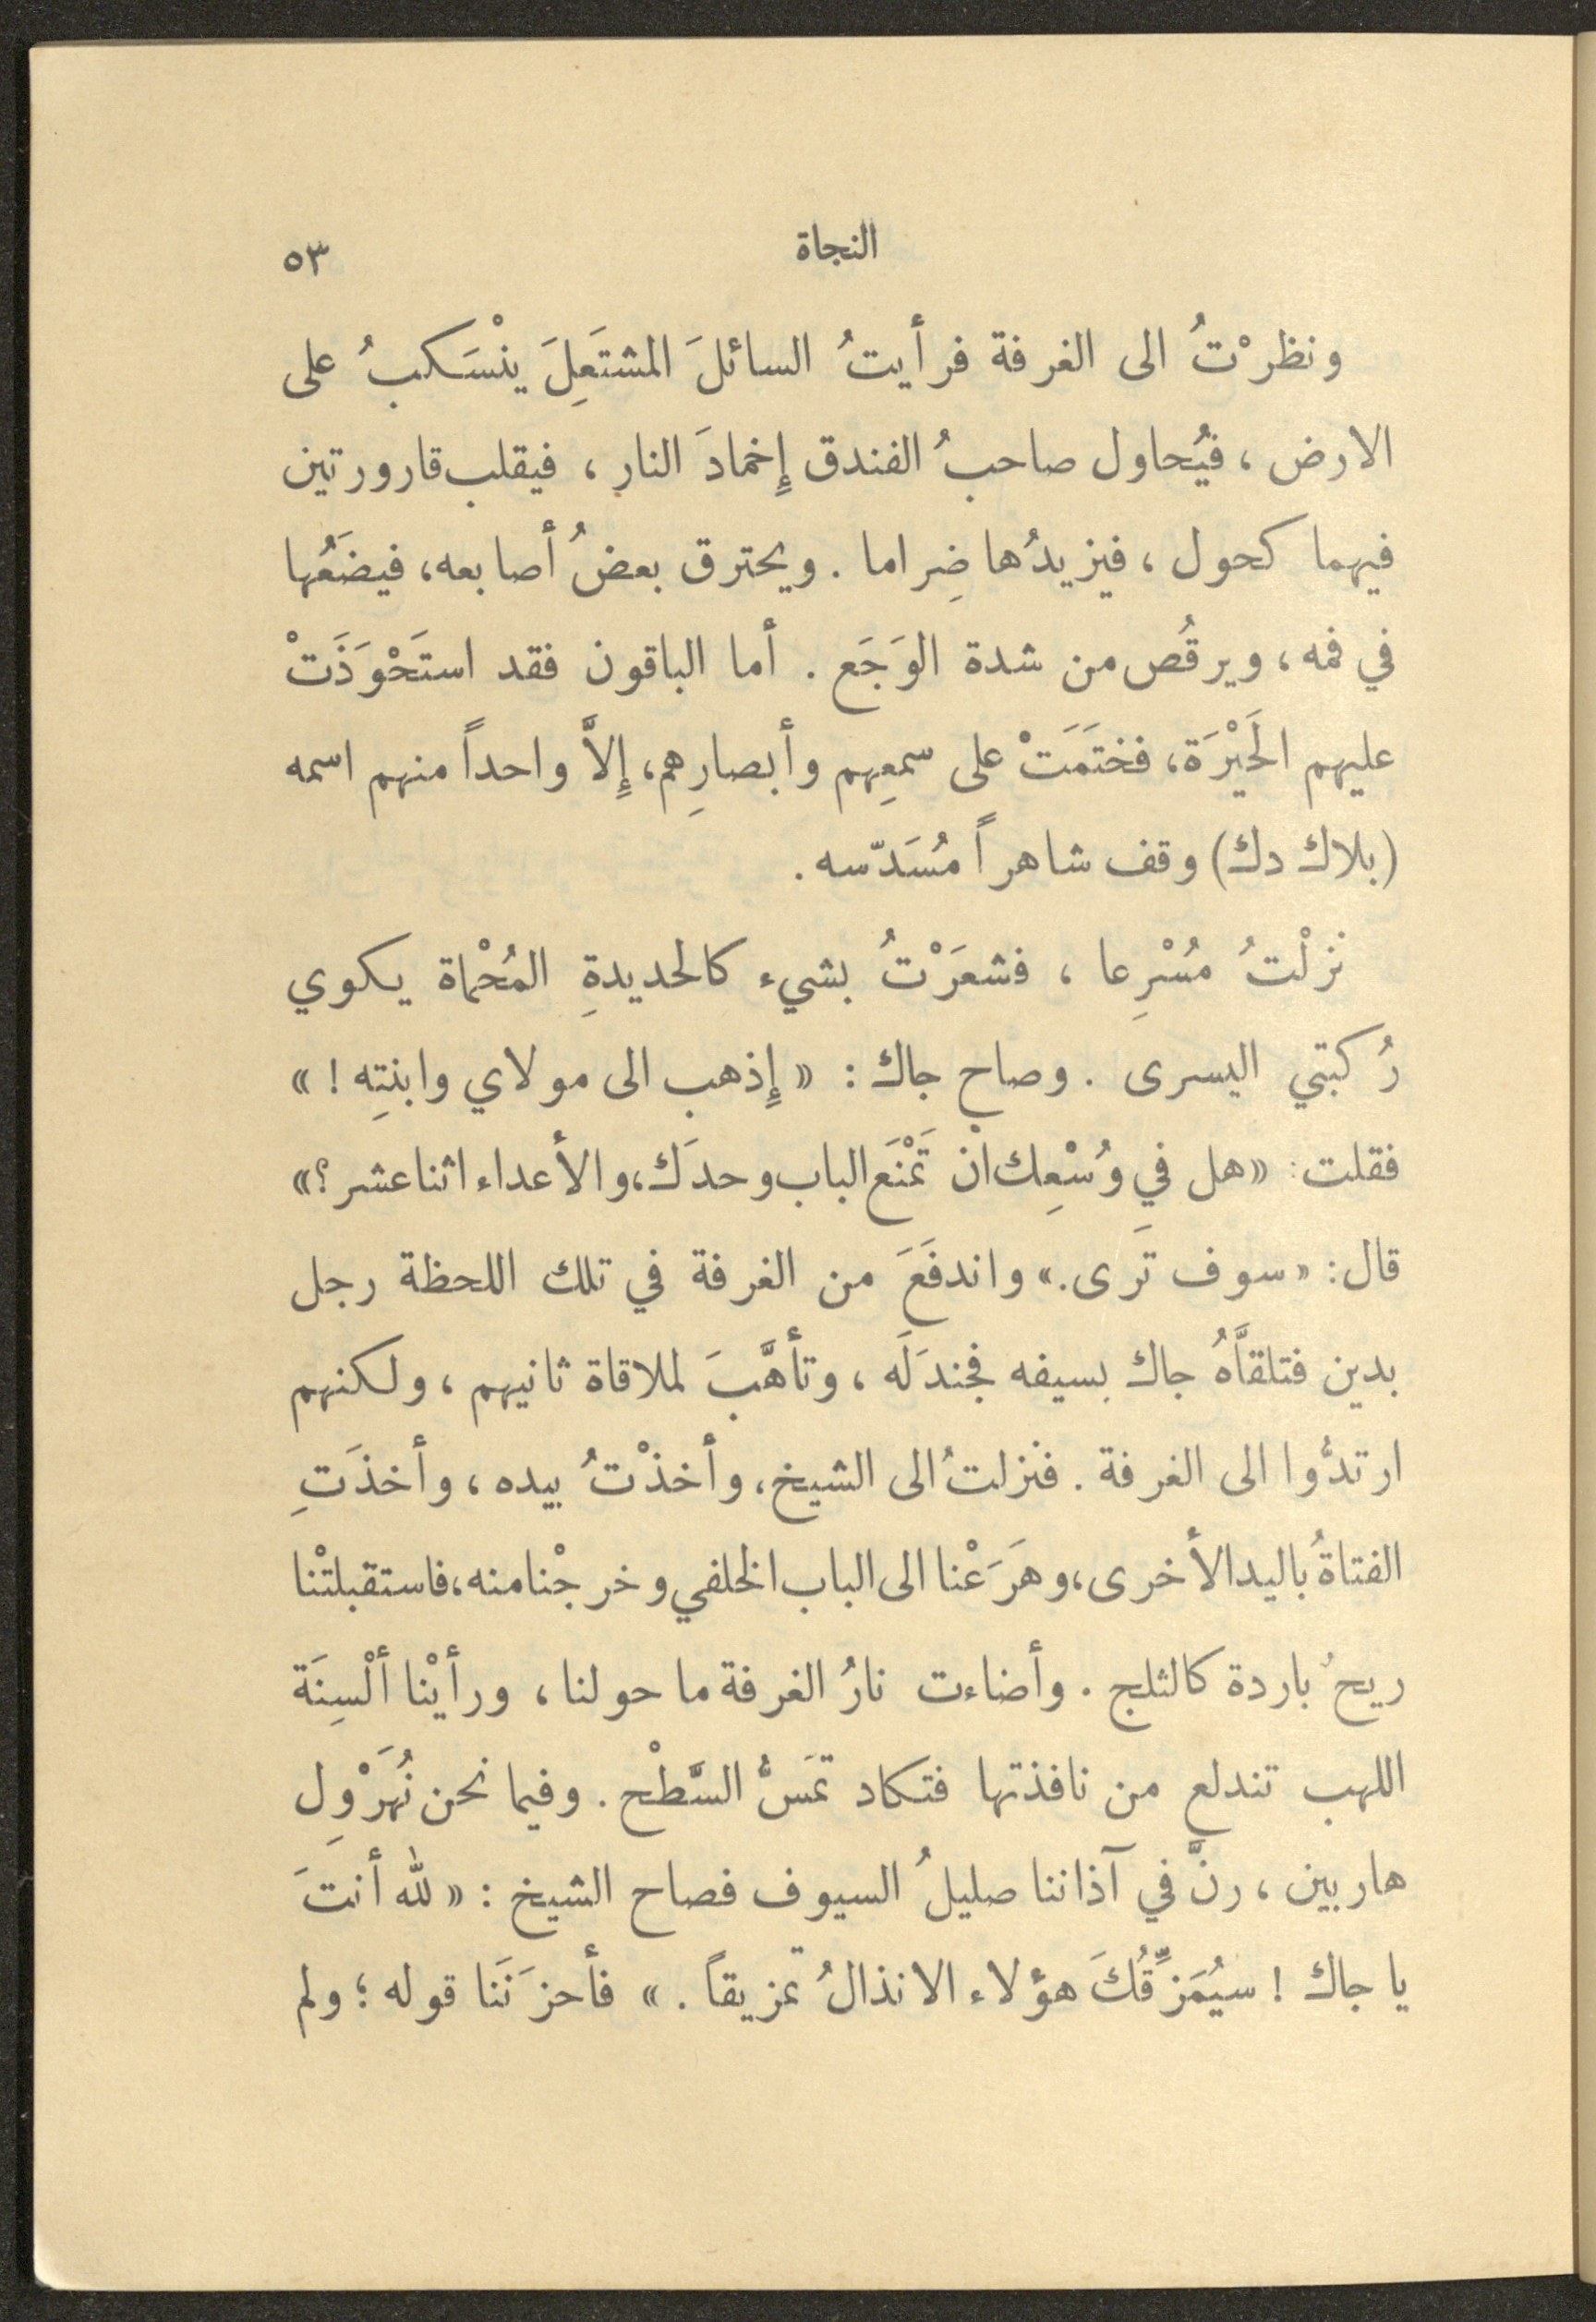 النجاة ٥٣
ونظرْتُ الى الغرفة فرأيتُ السائلَ المشتَعِلَ ينْسَكبُ على
الارض ، فيُحاول صاحبُ الفندق إِخمادَ النار ، فيقلب قارورتين
فيهما كحول ، فيزيدُها ضِراما . ويحترق بعضُ أصابعه، فيضَعُها
في فمه ، ويرقُص من شدة الوَجَع . أما الباقون فقد استَحْوَذَتْ
عليهم الحَيْرَة، فختَمَتْ على سمعِهم وأبصارِهم، إِلاَّ واحداً منهم اسمه
(بلاك دك) وقف شاهراً مُسَدّسه .
نزلْتُ مُسْرِعا ، فشعَرْتُ بشيء كالحديدةِ المُحْماة يكوي
رُكبتي اليسرى . وصاح جاك : « إِذهب الى مولاي وابنتِه ! »
فقلت : «هل في وُسْعِك ان تَمْنَع الباب وحدَك، والأعداء اثنا عشر ؟»
قال : « سوف تَرى .» واندفَعَ من الغرفة في تلك اللحظة رجل
بدين فتلقَّاهُ جاك بسيفه فجندَلَه ، وتأهَّبَ لملاقاة ثانيهم ، ولكنهم
ارتدُّوا الى الغرفة . فنزلتُ الى الشيخ، وأخذْتُ بيده ، وأخذَتِ
الفتاةُ باليد الأخرى، وهَرَعْنا الى الباب الخلفي وخرجْنا منه، فاستقبلتْنا
ريحٌ باردة كالثلج . وأضاءت نارُ الغرفة ما حولنا ، ورأيْنا ألْسِنَة
اللهب تندلع من نافذتها فتكاد تمَسُّ السَّطْح . وفيما نحن نُهَرْوِل
هاربين ، رنَّ في آذاننا صليلُ السيوف فصاح الشيخ : « لله أنتَ
يا جاك ! سيُمَزِّقُكَ هؤلاء الانذالُ تمزيقاً . » فأحزَنَنا قوله ؛ ولم